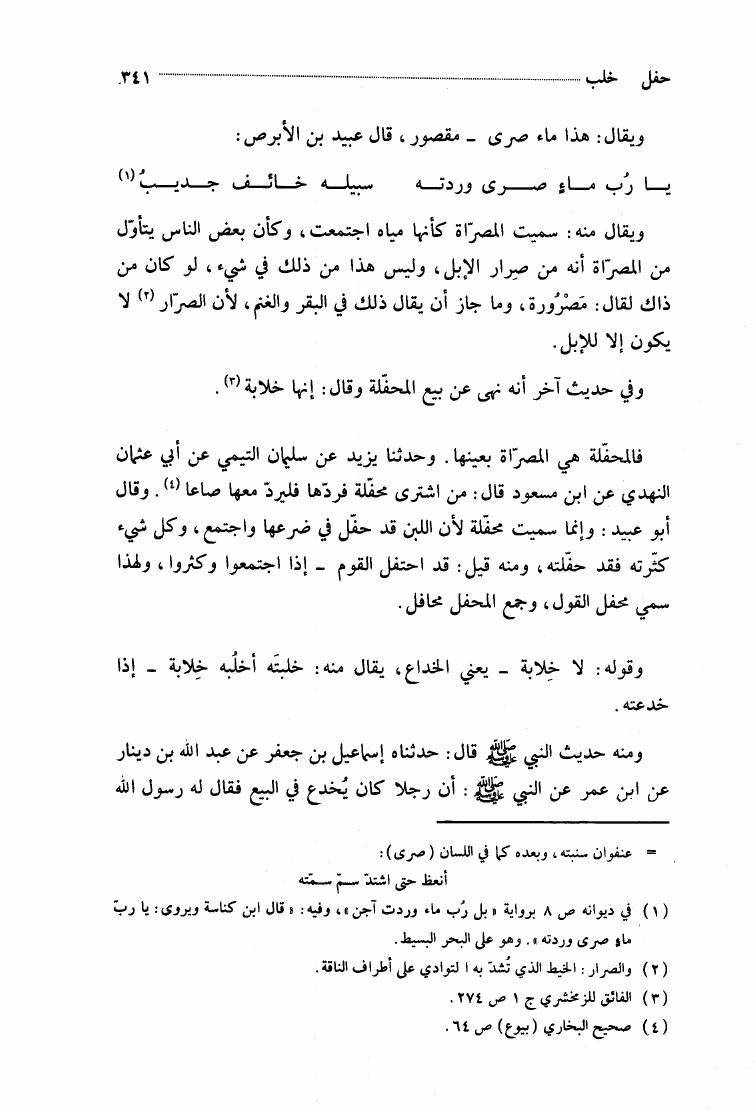 حفل خلب ..... ٣٤١
ويقال: هذا ماء صرى ــ مقصور، قال عبيد بن الأبرص:
يا رُب ماءٍ صرى وردته سبيله خائف جديبُ (١)
ويقال منه: سميت المصرّاة كأنها مياه اجتمعت، وكأن بعض الناس يتأوّل
من المصرّاة أنه من صِرار الإبل، وليس هذا من ذلك في شيء، لو كان من
ذاك لقال: مَصْرُورة، وما جاز أن يقال ذلك في البقر والغنم، لأن الصرّار (٢) لا
يكون إلا للإبل.
وفي حديث آخر أنه نهى عن بيع المحفّلة وقال: إنها خلابة (٣).
فالمحفّلة هي المصرّاة بعينها. وحدثنا يزيد عن سليمان التيمي عن أبي عثمان
النهدي عن ابن مسعود قال: من اشترى محفّلة فردّها فليردّ معها صاعا (٤). وقال
أبو عبيد: وإنما سميت محفّلة لأن اللبن قد حفّل في ضرعها واجتمع، وكل شيء
كثّرته فقد حفّلته، ومنه قيل: قد احتفل القوم ــ إذا اجتمعوا وكثروا، ولهذا
سمي محفل القول، وجمع المحفل محافل.
وقوله: لا خِلابة ــ يعني الخداع، يقال منه: خلبتَه أخلُبه خِلابة ــ إذا
خدعته.
ومنه حديث النبي ﷺ قال: حدثناه إسماعيل بن جعفر عن عبد الله بن دينار
عن ابن عمر عن النبي ﷺ: أن رجلا كان يُخدع في البيع فقال له رسول الله
= عنفوان سنبته، وبعده كما في اللسان (صرى):
أنعظ حتى اشتدّ سمّ سمّته
(١) في ديوانه ص ٨ برواية «بل رُب ماء وردت آجن»، وفيه: «قال ابن كناسة ويروى: يا ربّ
ماءٍ صرى وردته». وهو على البحر البسيط.
(٢) والصرار: الخيط الذي تُشدّ به ا لتوادي على أطراف الناقة.
(٣) الفائق للزمخشري ج ١ ص ٢٧٤.
(٤) صحيح البخاري (بيوع) ص ٦٤.